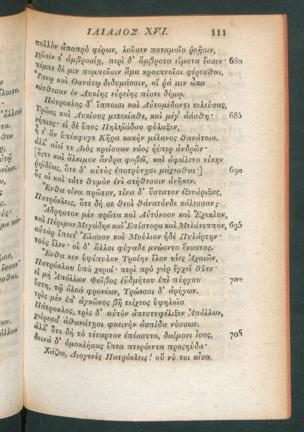 ΙΛΙΑΔΟΣ XVI. 111
πολλὸν ἀποπρὸ φέρων, λοῦσεν ποταμοῖο ῥοῇσιν,
χρῖσέν τ' ἀμβροσίῃ, περὶ δ' ἄμβροτα εἵματα ἕσσεν· 680
πέμπε δέ μιν πομποῖσιν ἅμα κραιπνοῖσι φέρεσθαι,
Ὕπνῳ καὶ Θανάτῳ διδυμάοσιν, οἵ ῥά μιν ὦκα
κάτθεσαν ἐν Λυκίης εὐρείης πίονι δήμῳ.
Πάτροκλος δ' ἵπποισι καὶ Αὐτομέδοντι κελεύσας,
Τρῶας καὶ Λυκίους μετεκίαθε, καὶ μέγ' ἀάσθη· 685
νήπιος· εἰ δὲ ἔπος Πηληϊάδαο φύλαξεν,
ἦ τ' ἂν ὑπέκφυγε Κῆρα κακὴν μέλανος Θανάτοιο.
ἀλλ' αἰεί τε Διὸς κρείσσων νόος ἠέπερ ἀνδρῶν·
[ὅστε καὶ ἄλκιμον ἄνδρα φοβεῖ, καὶ ἀφείλετο νίκην
ῥηϊδίως, ὁτὲ δ' αὐτὸς ἐποτρύνησι μάχεσθαι·] 690
ὅς οἱ καὶ τότε θυμὸν ἐνὶ στήθεσσιν ἀνῆκεν.
Ἔνθα τίνα πρῶτον, τίνα δ' ὕστατον ἐξενάριξας,
Πατρόκλεις, ὅτε δή σε θεοὶ θάνατόνδε κάλεσσαν;
Ἄδρηστον μὲν πρῶτα καὶ Αὐτόνοον καὶ Ἔχεκλον,
καὶ Πέριμον Μεγάδην καὶ Ἐπίστορα καὶ Μελάνιππον, 695
αὐτὰρ ἔπειτ' Ἔλασον καὶ Μούλιον ἠδὲ Πυλάρτην·
τοὺς ἕλεν· οἱ δ' ἄλλοι φύγαδε μνώοντο ἕκαστος.
Ἔνθα κεν ὑψίπυλον Τροίην ἕλον υἷες Ἀχαιῶν,
Πατρόκλου ὑπὸ χερσί· περὶ πρὸ γὰρ ἔγχεϊ θῦεν·
εἰ μὴ Ἀπόλλων Φοῖβος ἐϋδμήτου ἐπὶ πύργου 700
ἔστη, τῷ ὀλοὰ φρονέων, Τρώεσσι δ' ἀρήγων.
τρὶς μὲν ἐπ' ἀγκῶνος βῆ τείχεος ὑψηλοῖο
Πάτροκλος, τρὶς δ' αὐτὸν ἀπεστυφέλιξεν Ἀπόλλων,
χείρεσσ' ἀθανάτῃσι φαεινὴν ἀσπίδα νύσσων.
ἀλλ' ὅτε δὴ τὸ τέταρτον ἐπέσσυτο, δαίμονι ἶσος, 705
δεινὰ δ' ὁμοκλήσας ἔπεα πτερόεντα προςηύδα·
Χάζεο, Διογενὲς Πατρόκλεις! οὔ νύ τοι αἶσα,